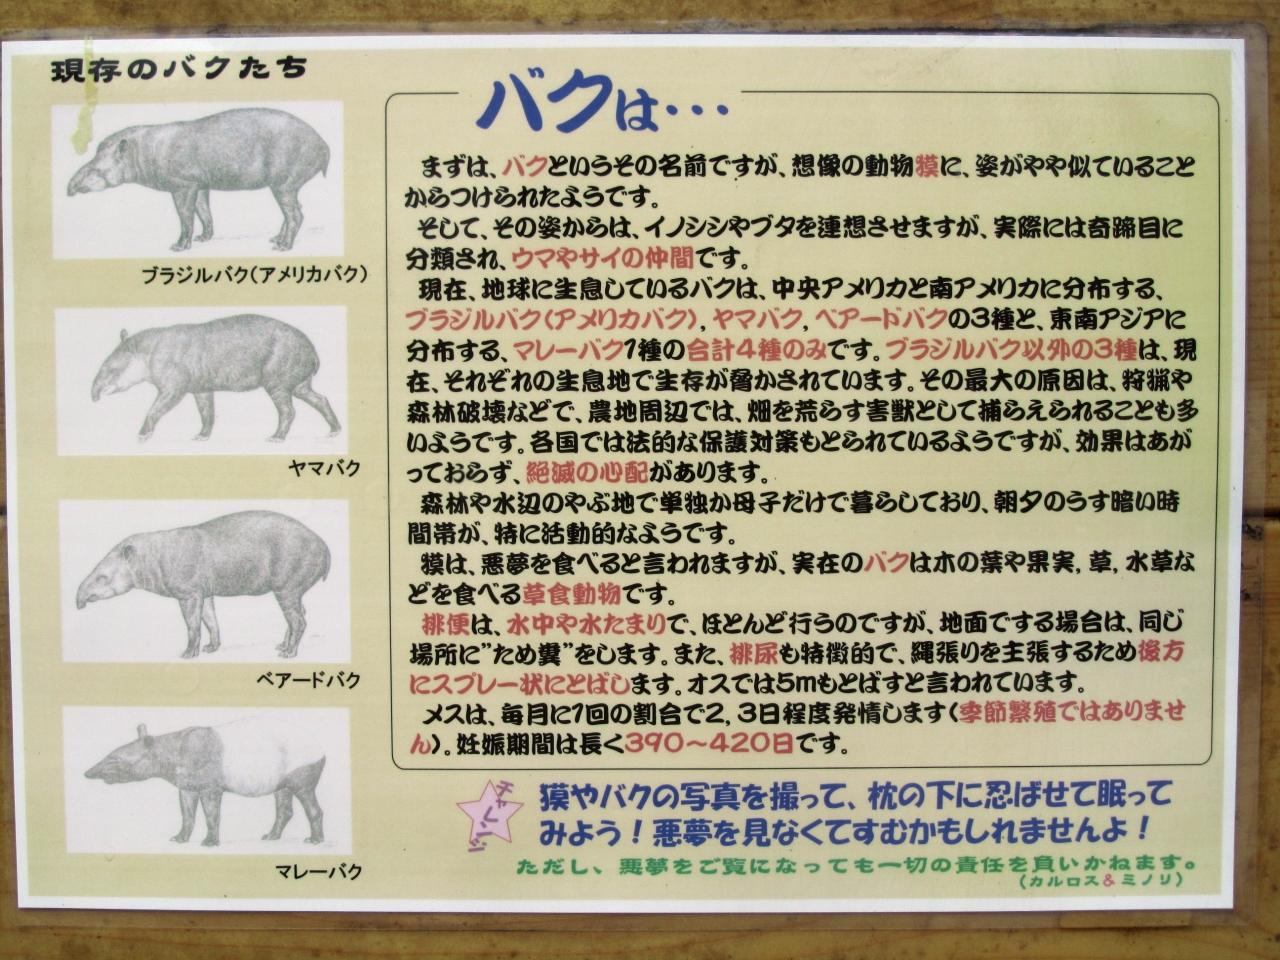 現存のバクたち
ブラジルバク(アメリカバク)
ヤマバク
ベアードバク
マレーバク
バクは・・・
まずは、バクというその名前ですが、想像の動物獏に、姿がやや似ていること
からつけられたようです。
そして、その姿からは、イノシシやブタを連想させますが、実際には奇蹄目に
分類され、ウマやサイの仲間です。
現在、地球に生息しているバクは、中央アメリカと南アメリカに分布する、
ブラジルバク(アメリカバク),ヤマバク,ベアードバクの3種と、東南アジアに
分布する、マレーバク1種の合計4種のみです。ブラジルバク以外の3種は、現
在、それぞれの生息地で生存が脅かされています。その最大の原因は、狩猟や
森林破壊などで、農地周辺では、畑を荒らす害獣として捕らえられることも多
いようです。各国では法的な保護対策もとられているようですが、効果はあが
っておらず、絶滅の心配があります。
森林や水辺のやぶ地で単独か母子だけで暮らしており、朝夕のうす暗い時
間帯が、特に活動的なようです。
獏は、悪夢を食べると言われますが、実在のバクは木の葉や果実,草,水草な
どを食べる草食動物です。
排便は、水中や水たまりで、ほとんど行うのですが、地面でする場合は、同じ
場所に"ため糞"をします。また、排尿も特徴的で、縄張りを主張するため後方
にスプレー状にとばします。オスでは5mもとばすと言われています。
メスは、毎月に1回の割合で2,3日程度発情します(季節繁殖ではありませ
ん)。妊娠期間は長く390～420日です。
チャレンジ
獏やバクの写真を撮って、枕の下に忍ばせて眠って
みよう!悪夢を見なくてすむかもしれませんよ!
ただし、悪夢をご覧になっても一切の責任を負いかねます。
(カルロス&ミノリ)